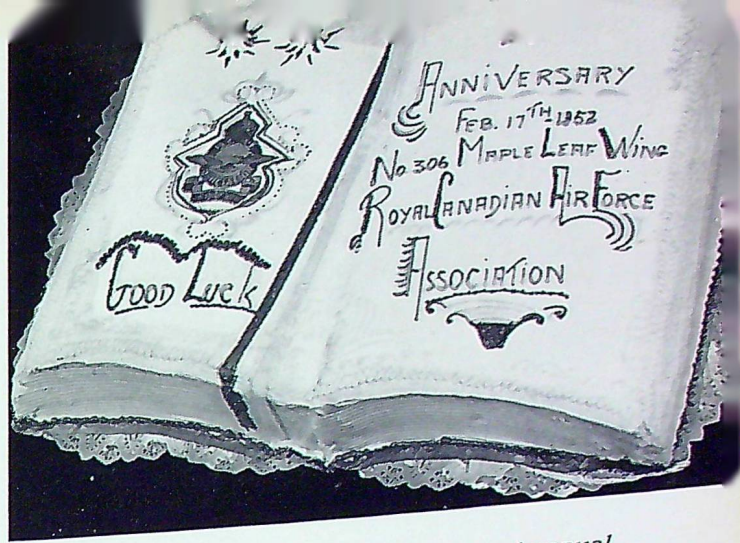 GOOD LUCK
ANNIVERSARY
FEB. 17TH 1952
No 306 MAPLE LEAF WING
ROYAL CANADIAN AIR FORCE
ASSOCIATION